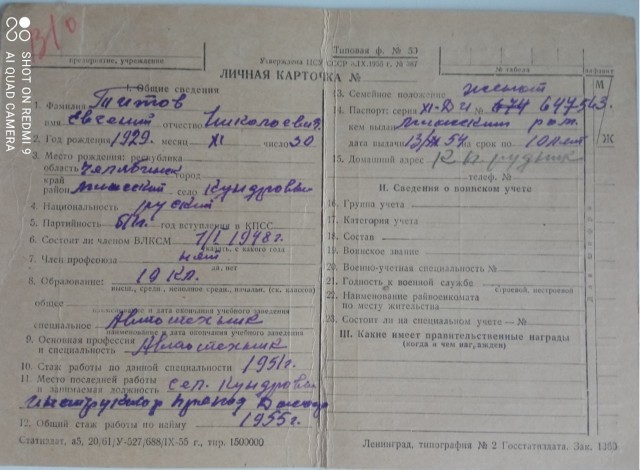 В/О
Типовая ф. № 53
предприятие, учреждение
Утверждена ЦСУ СССР
№ табеля
алфавит
ЛИЧНАЯ КАРТОЧКА №
I. Общие сведения
1. Фамилия Титов
имя Евгений отчество Николаевич
2. Год рождения 1929. месяц XI число 30
3. Место рождения: республика
область Челябинск город
край
район село Кундравы
4. Национальность руский
5. Партийность б/п. год вступления в КПСС
6. Состоит ли членом ВЛКСМ 1/I 1948г.
указать, с какого года
7. Член профсоюза нет
да, нет
8. Образование: 10 кл.
высш., средн., неполное средн., начальн. (ск. классов)
общее
наименование и дата окончания учебного заведения
специальное Авиотехник
наименование и дата окончания учебного заведения
9. Основная профессия
и специальность Авиотехник
10. Стаж работы по данной специальности 1951г.
11. Место последней работы
и занимаемая должность сел. Кундравы
12. Общий стаж работы по найму 1955г.
Статиздат. а5, 20/61/У-527/688/IX-55 г., тир. 1500000
13. Семейное положение женат
14. Паспорт: серия № 647563.
кем выдан
дата выдачи на срок по 10 лет
15. Домашний адрес
телеф. №
М
Ж
II. Сведения о воинском учете
16. Группа учета
17. Категория учета
18. Состав
19. Воинское звание
20. Военно-учетная специальность №
21. Годность к военной службе
строевой, нестроевой
22. Наименование райвоенкомата
по месту жительства
23. Состоит ли на специальном учете — №
III. Какие имеет правительственные награды
(когда и чем награжден)
Ленинград, типография № 2 Госстатиздата. Зак. 1153
SHOT ON REDMI 9
AI QUAD CAMERA